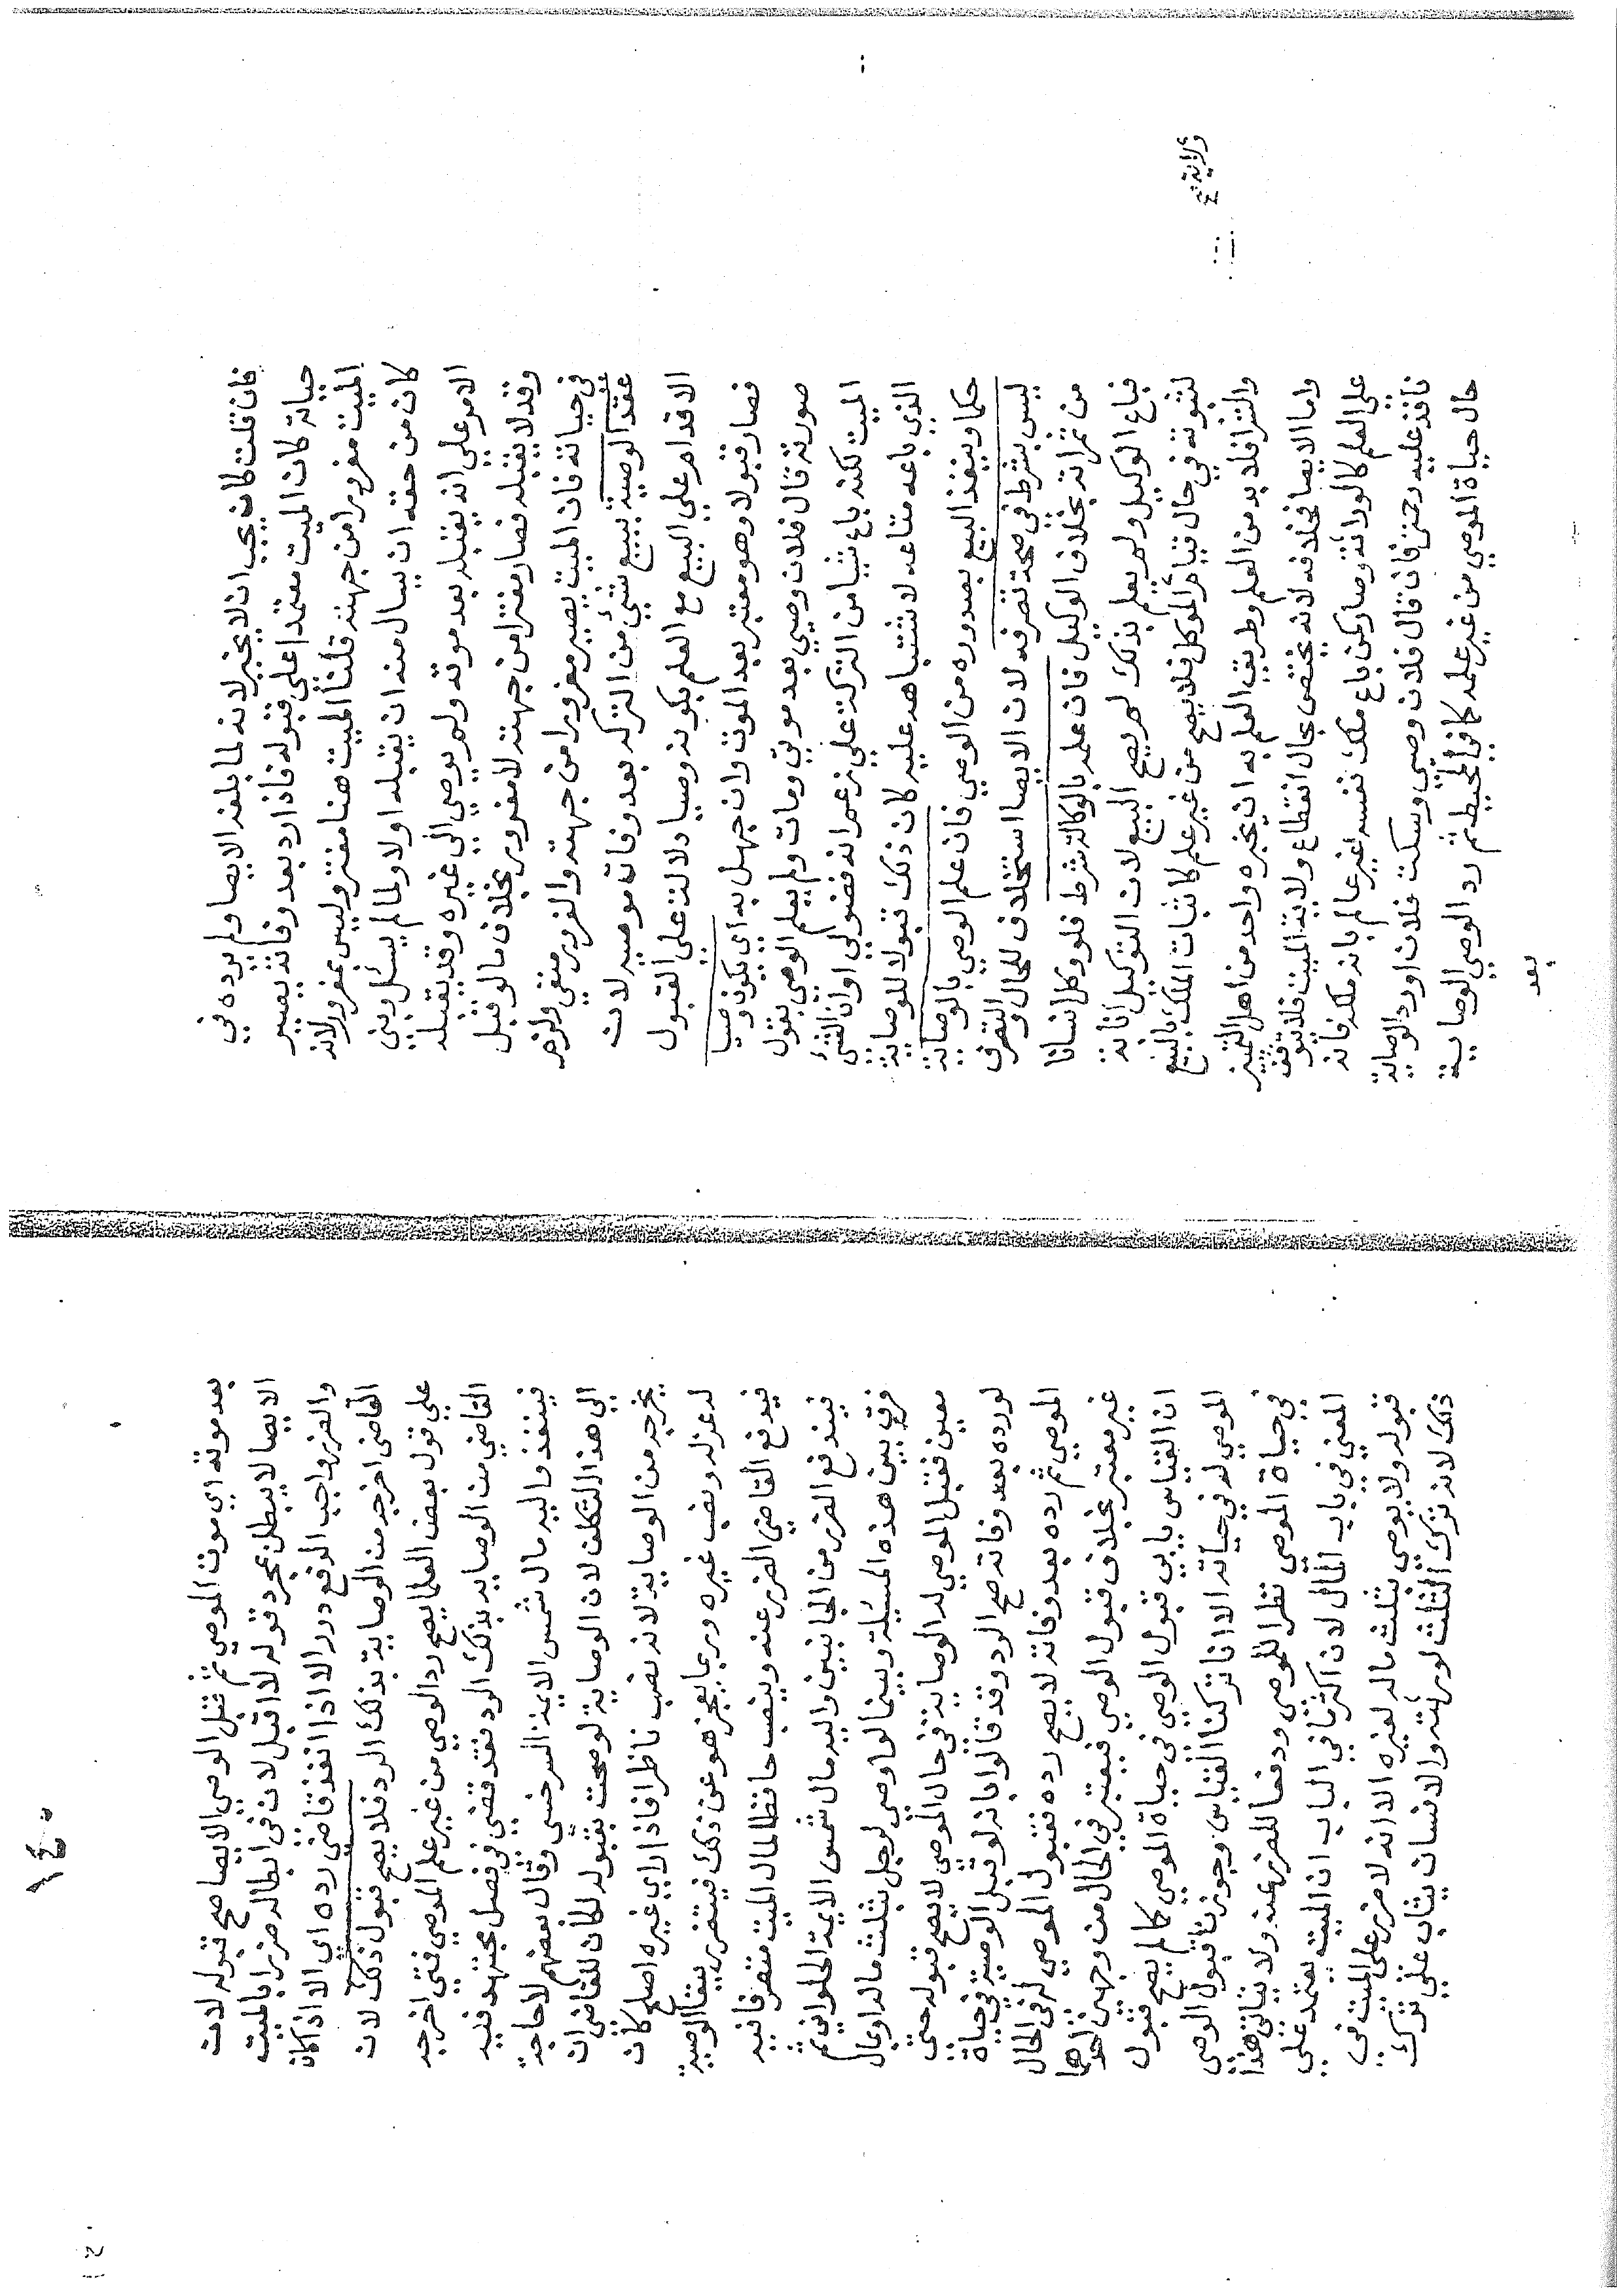 فان قلت كان يجب ان لا يخير لانه لما بلغه الايصا ولم يرده في
حياته كان الميت معتمدا على قبوله فاذا رد بعد وفاته يصير
الميت مغرورا من جهته قلنا الميت هنا مغتر وليس بمغرور لانه
كان من حقه ان يسال منه ان يقبله اولا ولما لم يسئل وبني
الامر علي انه يقبله بعد موته ولم يوصي الي غيره وقد يقبله
وقد لا يقبله فصار مغترا من جهته لا مغرور بخلاف ما لو قبل
في حياته فان الميت يصير مغرورا من جهته والغرور منفي ولزم
عقد الوصية ببيع شئ من التركه بعد وفاة موصيه لان
الاقدام علي البيع مع العلم بكونه وصيا دلالة علي القبول
فصار قبولا وهو معتبر بعد الموت وان جهل به اي بكونه وصيا
صورته قال فلان وصيي بعد موتي ومات ولم يعلم الوصي بقول
الميت لكنه باع شيا من التركة علي زعم انه فضولي او ان الشئ
الذي باعه متاعه لاشتباهه عليه كان ذلك قبولا للوصاية
حكما وينفذ البيع بصدوره من الوصي فان علم الوصي بالوصاية
ليس بشرط في صحة تصرفه لان الايصا استخلاف للحال والتصرف
من ثمراته بخلاف الوكيل فان علمه بالوكالة شرط فلو وكل انسانا
فباع الوكيل ولم يعلم بذلك لم يصح البيع لان التوكيل انابة
لثبوته في حال قيام الموكل فلا يصح من غير علم كاثبات الملك بالبيع
والشرا فلا بد من العلم وطريق العلم به ان يخبره واحد من اهل التميز
واما الايصا فخلافه لانه يختص بحال انقطاع ولاية الميت فلا يتوقف
علي العلم كالوراثة وصار كمن باع ملك نفسه غير عالم بانه ملكه فانه
نافذ عليه رحتي فان قال فلان وصيي وسكت فلان او رد الوصاية
حال حياة الموصي من غير علمه كما في المحيط ثم رد الوصي الوصاية
بعد
ولاية صح
بعد موته اي موت الموصي ثم قبل الوصي الايصا صح قبوله لان
الايصا لا يبطل بمجرد قوله لا اقبل لان في ابطاله ضررا بالميت
والضرر واجب الدفع درر الا اذا انفذ قاض رده اي الا اذا كان
القاضي اخرجه من الوصاية بذلك الرد فلا يصح قبول ذلك لان
علي قول بعض العلما يصح رد الوصي من غير علم الموصي فتي اخرجه
القاضي من الوصايه بذلك الرد فقد قضي في فصل مجتهد فيه
فينفذ واليه مال شمس الايمة السرخسي وقال بعضهم لا حاجة
الي هذا التكلف لان الوصاية لو صحت بقبوله لكان للقاضي ان
يخرجه من الوصاية لانه نصب ناظرا فاذا راي غيره اصلح كان
له عزله ونصب غيره وربما يعجز هو عن ذلك فيتضرر ببقا الوصية
فيدفع القاضي الضرر عنه وينصب حافظا لمال الميت متصرفا فيه
فيندفع الضرر من الجانبين واليه مال شمس الايمة الحلواني ثم
فرق بين هذه المسئلة وبينما لو اوصي لرجل بثلث ماله او بمال
معين فقبل الموصي له الوصاية في حال الموصي لا يصح قبوله حتي
لو رده بعد وفاته صح الرد وقد قالوا بانه لو قبل الوصية في حياة
الموصي ثم رده بعد وفاته لا يصح رده فقبول الموصي له في الحال
غير معتبر بخلاف قبول الوصي فيعتبر في الحال من وجهين احدهما
ان القياس يابي قبول الوصي في حياة الموصي كما لم يصح قبول
الموصي له في حياته الا انا تركنا القياس وجوزنا قبول الوصي
في حياة الموصي نظرا للموصي ودفعا للضرر عنه ولا يتاتي هذا
المعني في باب المال لان اكثر ما في الباب ان الميت يعتمد علي
قبوله ولا يوصي بثلث ماله لغيره الا انه لا ضرر علي الميت في
ذلك لانه ترك الثلث لورثته والانسان يثاب علي ترك
١٤٠